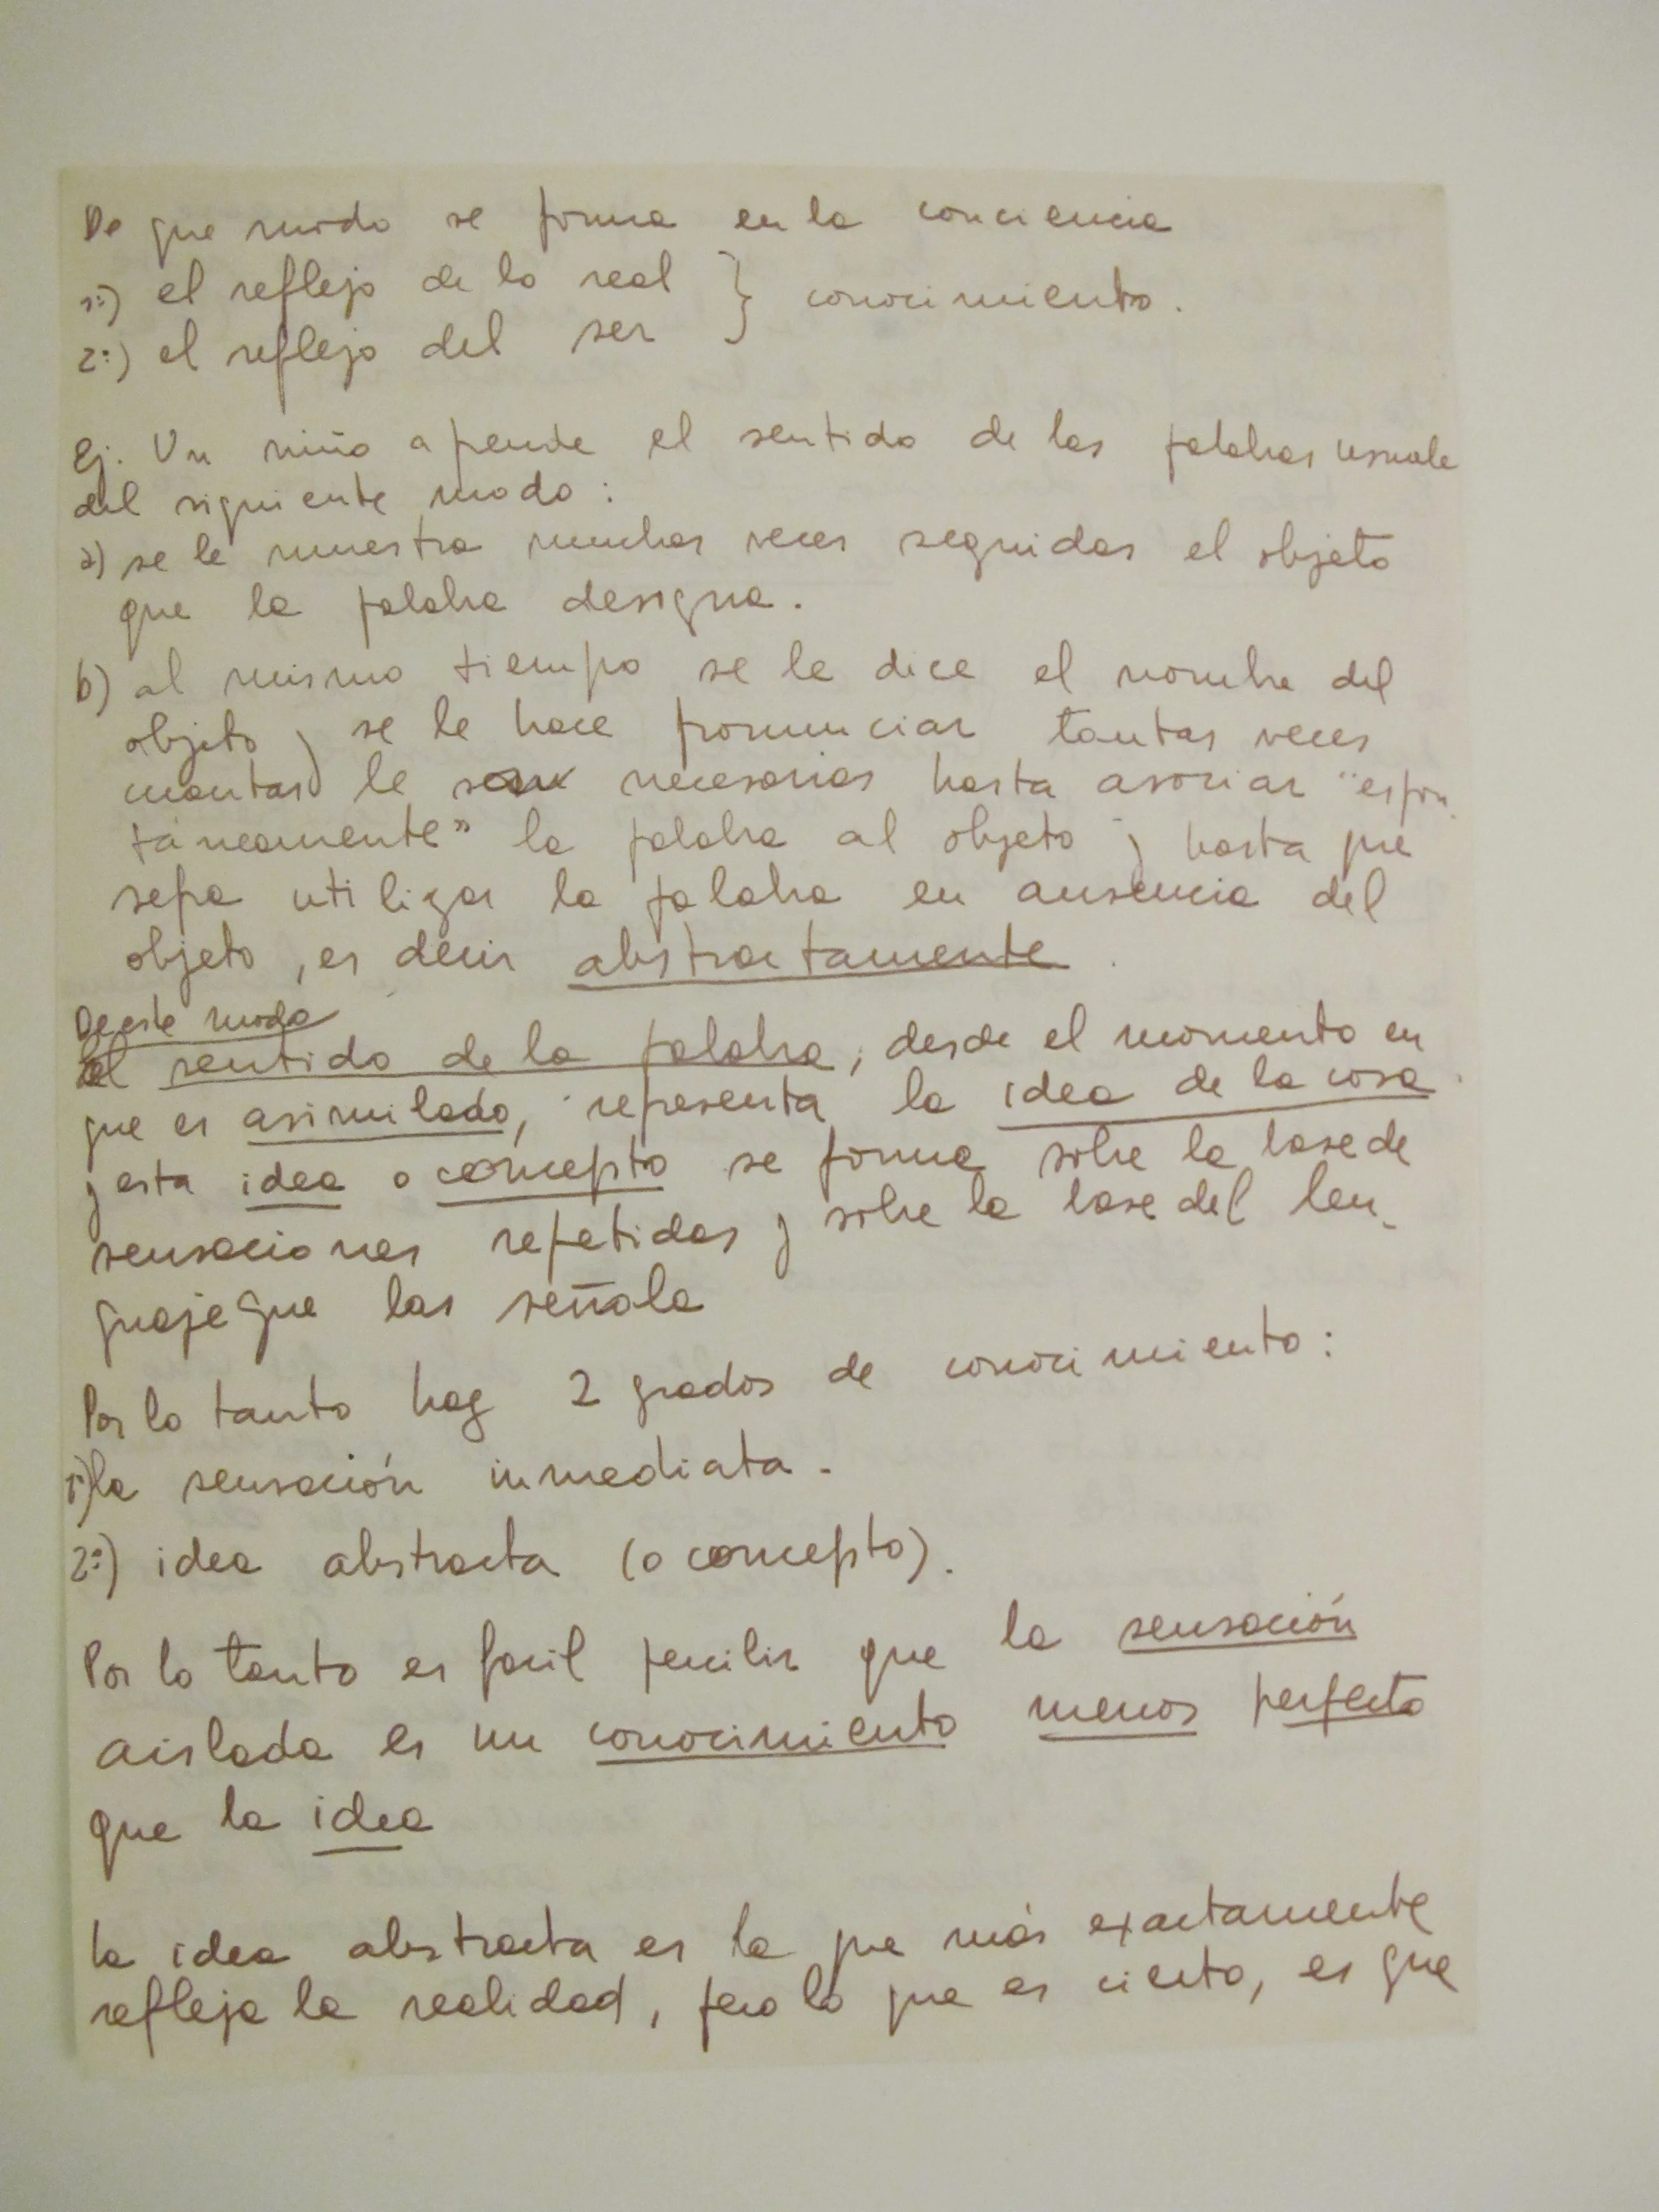 De que modo se forma en la conciencia
1º) el reflejo de lo real } conocimiento.
2º) el reflejo del ser
Ej. Un niño aprende el sentido de las palabras usuale
del siguiente modo:
a) se le muestra muchas veces seguidas el objeto
que la palabra designa.
b) al mismo tiempo se le dice el nombre del
objeto y se le hace pronunciar tantas veces
cuantas le sean necesarias hasta asociar "espon
táneamente" la palabra al objeto y hasta que
sepa utilizar la palabra en ausencia del
objeto, es decir abstractamente.
De este modo
el sentido de la palabra, desde el momento en
que es asimilado, representa la idea de la cosa
y esta idea o concepto se forma sobre la base de
sensaciones repetidas y sobre la base del len-
guaje que las señala
Por lo tanto hay 2 grados de conocimiento:
1º) la sensación inmediata.
2º) idea abstracta (o concepto).
Por lo tanto es facil percibir que la sensación
aislada es un conocimiento menos perfecto
que la idea
la idea abstracta es la que más exactamente
refleja la realidad, pero lo que es cierto, es que